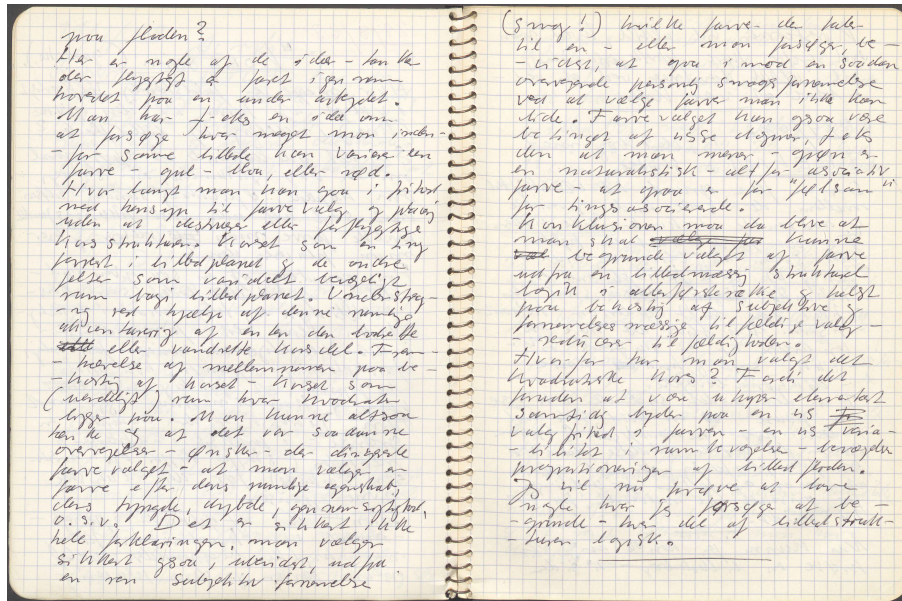 paa fladen?
Her er nogle af de ideer – tanker
der flygtigt er faret igennem
hovedet paa en under arbejdet.
Man har f. eks en idé om
at forsøge hvor meget man inden-
-for samme billede kan variere een
farve – gul – blaa, eller rød.
Hvor langt man kan gaa i frihed
med hensyn til farve valg og placering
uden at destruere eller forflygtige
Korsstrukturen. Korset som en ting
forrest i billedplanet & de andre
felter som varieret bevægeligt
rum bag i billedplanet. Understreg-
-ning ved hjælp af denne rumlige
accentuering af enten den lodrette
eller vandrette korsdel. Frem-
-hævelse af mellemrummene paa be-
-kostning af Korset – Korset som
(uendeligt) rum hvor kvadrater
ligger paa. Man kunne altsaa
tænke sig at det var saadanne
overvejelser – ønsker – der dirigerede
farvevalget – at man vælger en
farve efter dens rumlige egenskab,
dens tyngde, dybde, gennemsigtighed,
o.s.v. Det er sikkert ikke
hele forklaringen, man vælger
sikkert ogsaa, ubevidst, ud fra
en ren subjektiv fornemmelse
(smag!) hvilke farve der taler
til en – eller man forsøger, be-
-vidst, at gaa imod en saadan
overvejende personlig smagsfornemmelse
ved at vælge farver man ikke kan
lide. Farvevalget kan ogsaa være
betinget af visse dogmer, f eks
den at man mener – grøn er
en naturalistisk – alt for associativ
farve – at graa er for "følsom"
for tingsassocierende.
Konklusionen maa da blive at
man skal kunne
begrunde valget af farve
ud fra en billedmæssig strukturel
logik i allerførste række & helst
paa bekostning af subjektive &
fornemmelsesmæssige tilfældige valg –
reducere tilfældigheden.
Hvorfor har man valgt det
kvadratiske Kors? Fordi det
foruden at være uhyre elementært
samtidig byder paa en vis
valgfrihed i farven – en vis varia-
-bilitet i rumbevægelser – bevægelige
proportioneringer af billedfladen.
Jeg vil nu prøve at lave
nogle hvor jeg forsøger at be-
-grunde – hver del af billedstruk-
-turen logisk.